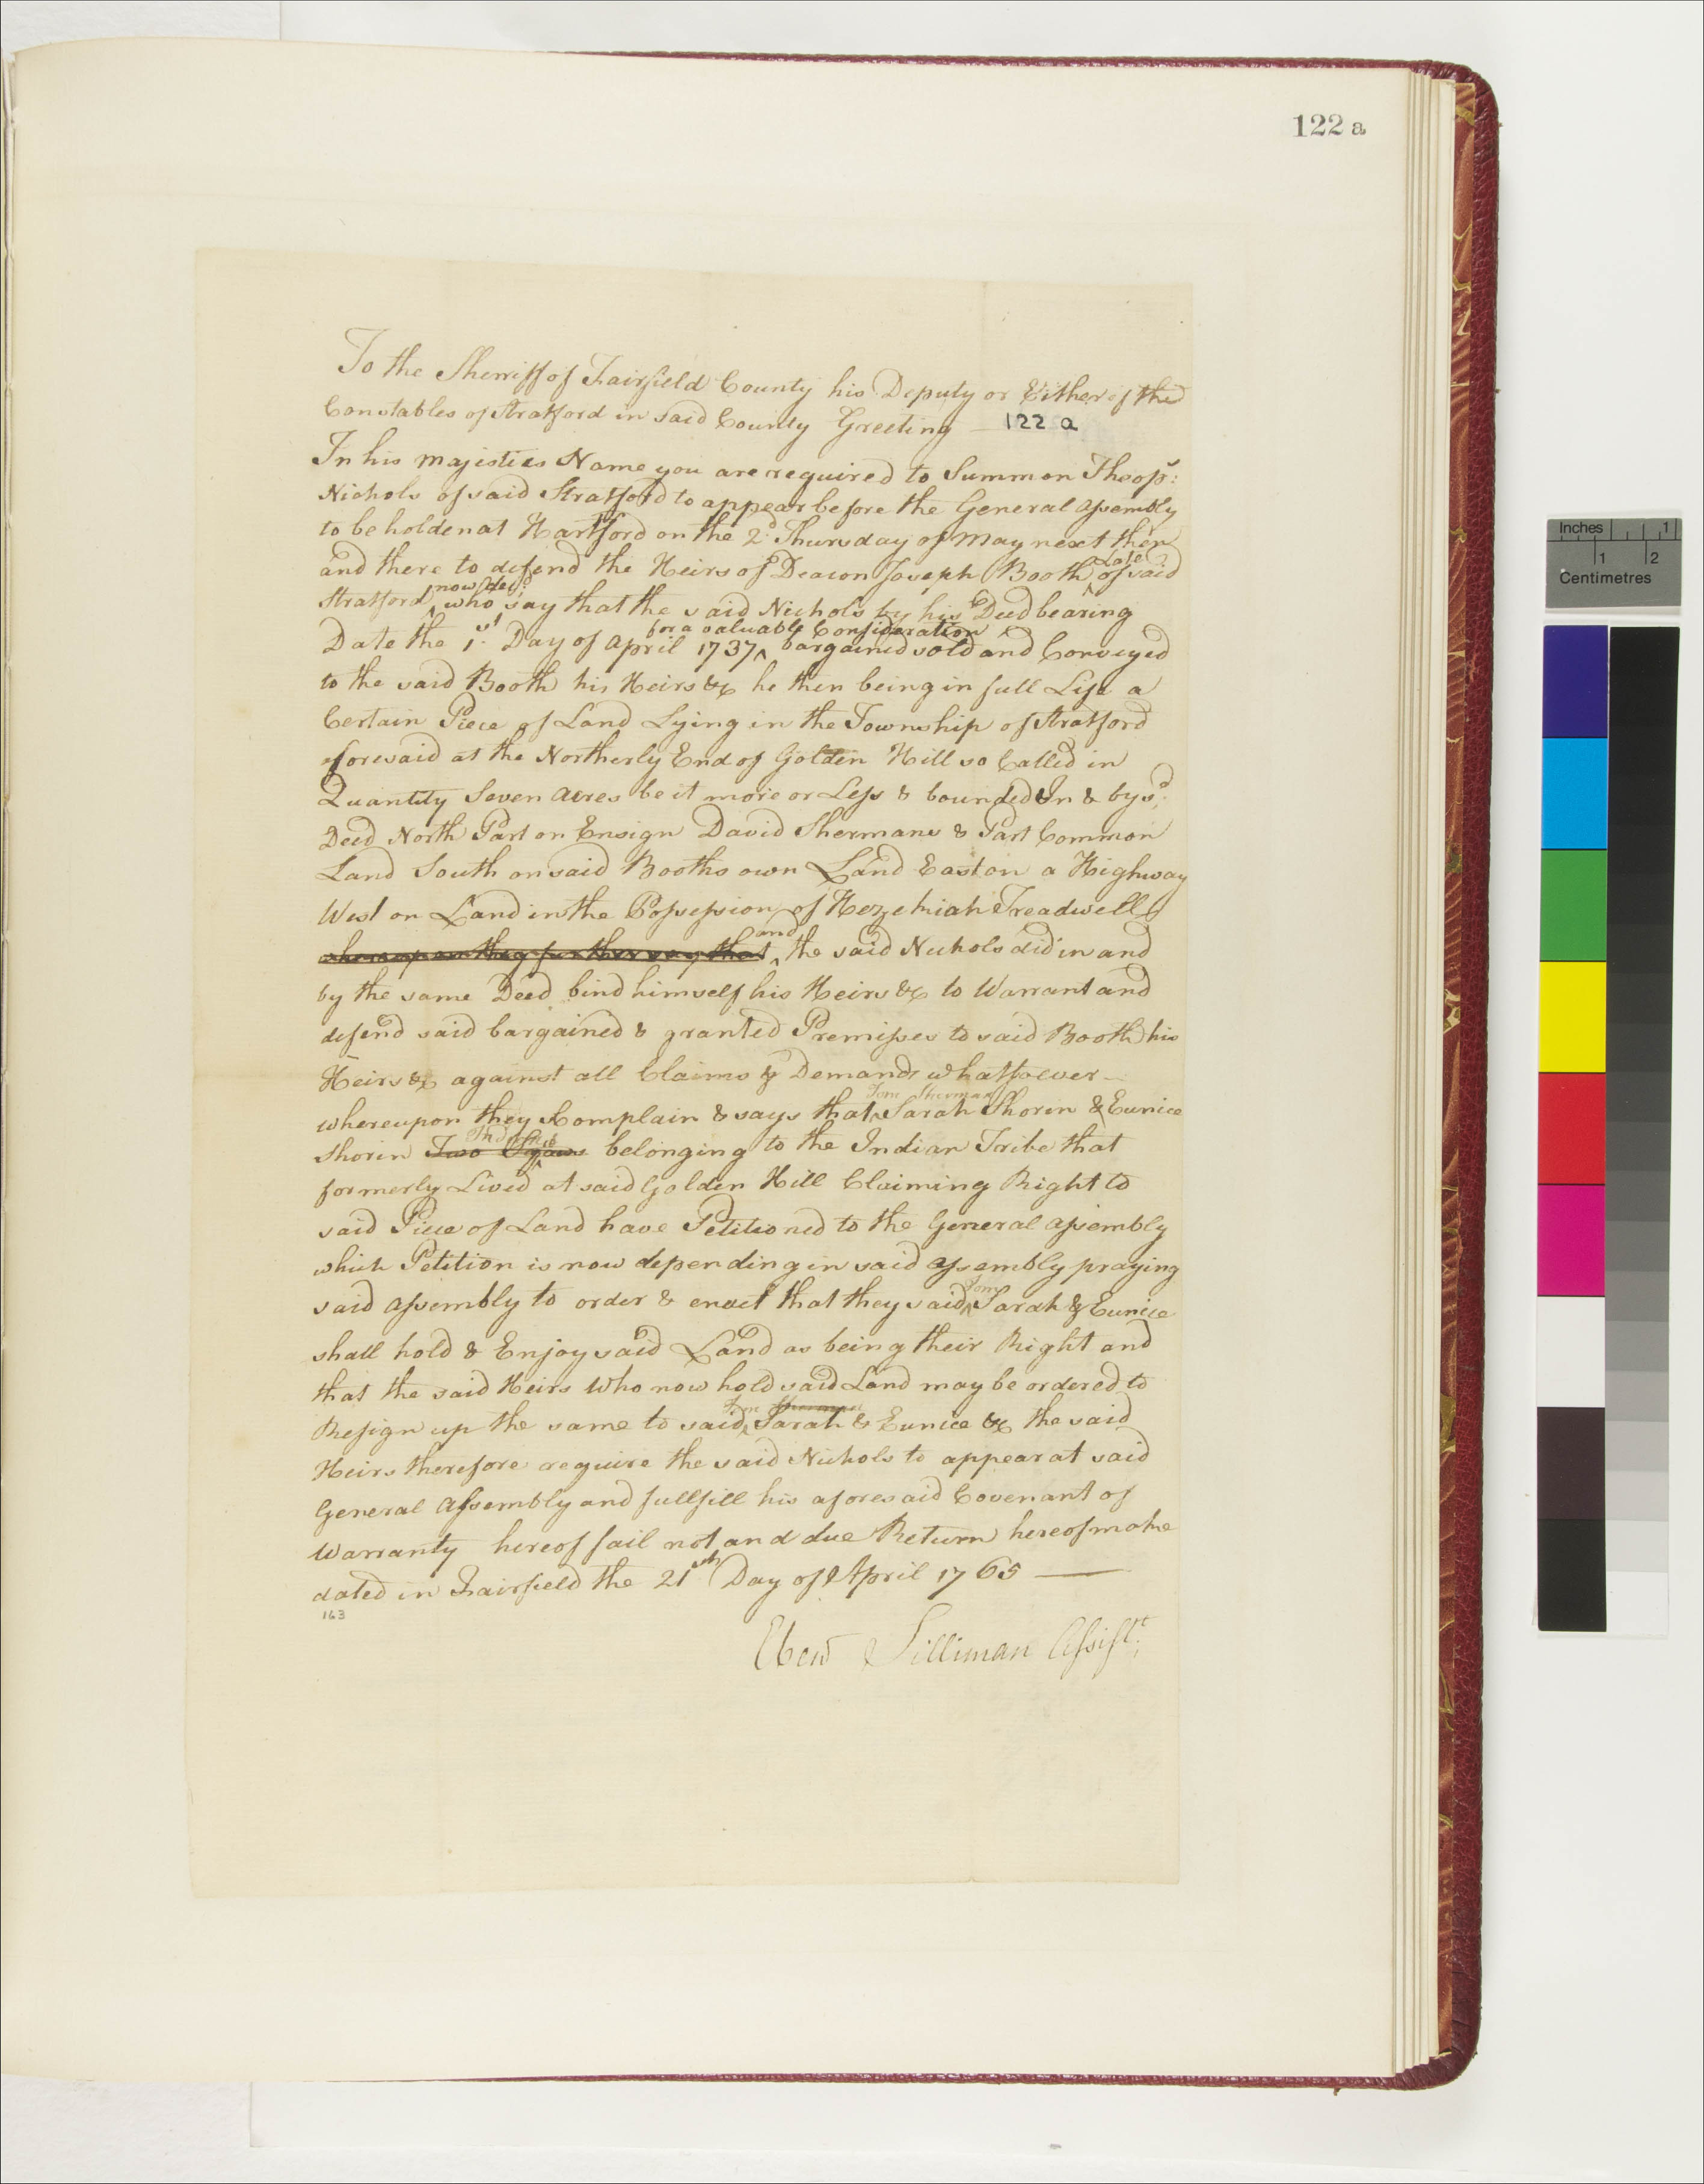 122 a
To the Sherriff of Fairfield County his Deputy or Either of the
Constables of Stratford in said County Greeting — 122 a
In his majisties Name you are required to Summon Theops:
Nichols of said Stratford to appear before the General Assembly
to be holden at Hartford on the 2d Thursday of May next then
and there to defend the Heirs of Deacon Joseph Booth Late of said
Stratford now decd who say that the said Nichols by his Deed bearing
Date the 1st Day of April 1737 for a valuable Consideration bargained sold and Conveyed
to the said Booth his Heirs &c he then being in full Life a
Certain Piece of Land Lying in the Township of Stratford
aforesaid at the Northerly End of Golden Hill so Called in
Quantity Seven Acres be it more or Less & bounded In & by sd:
Deed North Part on Ensign David Shermans & Part Common
Land South on said Booths own Land East on a Highway
West on Land in the Possession of Hezekiah Treadwell
whereupon they further say that and the said Nichols did in and
by the same Deed bind himself his Heirs &c to Warrant and
defend said bargained & granted Premisses to said Booth his
Heirs &c against all Claims & Demands whatsoever —
whereupon they Complain & says that Tom Sherman Sarah Shorin & Eunice
Shorin Two Sqaws belonging to the Indian Tribe that
formerly Lived at said Golden Hill Claiming Right to
said Piece of Land have Petitioned to the General Assembly
which Petition is now depending in said Assembly praying
said Assembly to order & enact that they said Tom Sarah & Eunice
shall hold & Enjoy said Land as being their Right and
that the said Heirs Who now hold said Land may be ordered to
Resign up the same to said Tom Sherman Sarah & Eunice &c the said
Heirs therefore require the said Nichols to appear at said
General Assembly and fullfill his aforesaid Covenant of
Warranty hereof fail not and due Return hereof make
dated in Fairfield the 21th Day of April 1765 —
163
Ebenr Silliman Assistt:
Inches 1
1 2
Centimetres